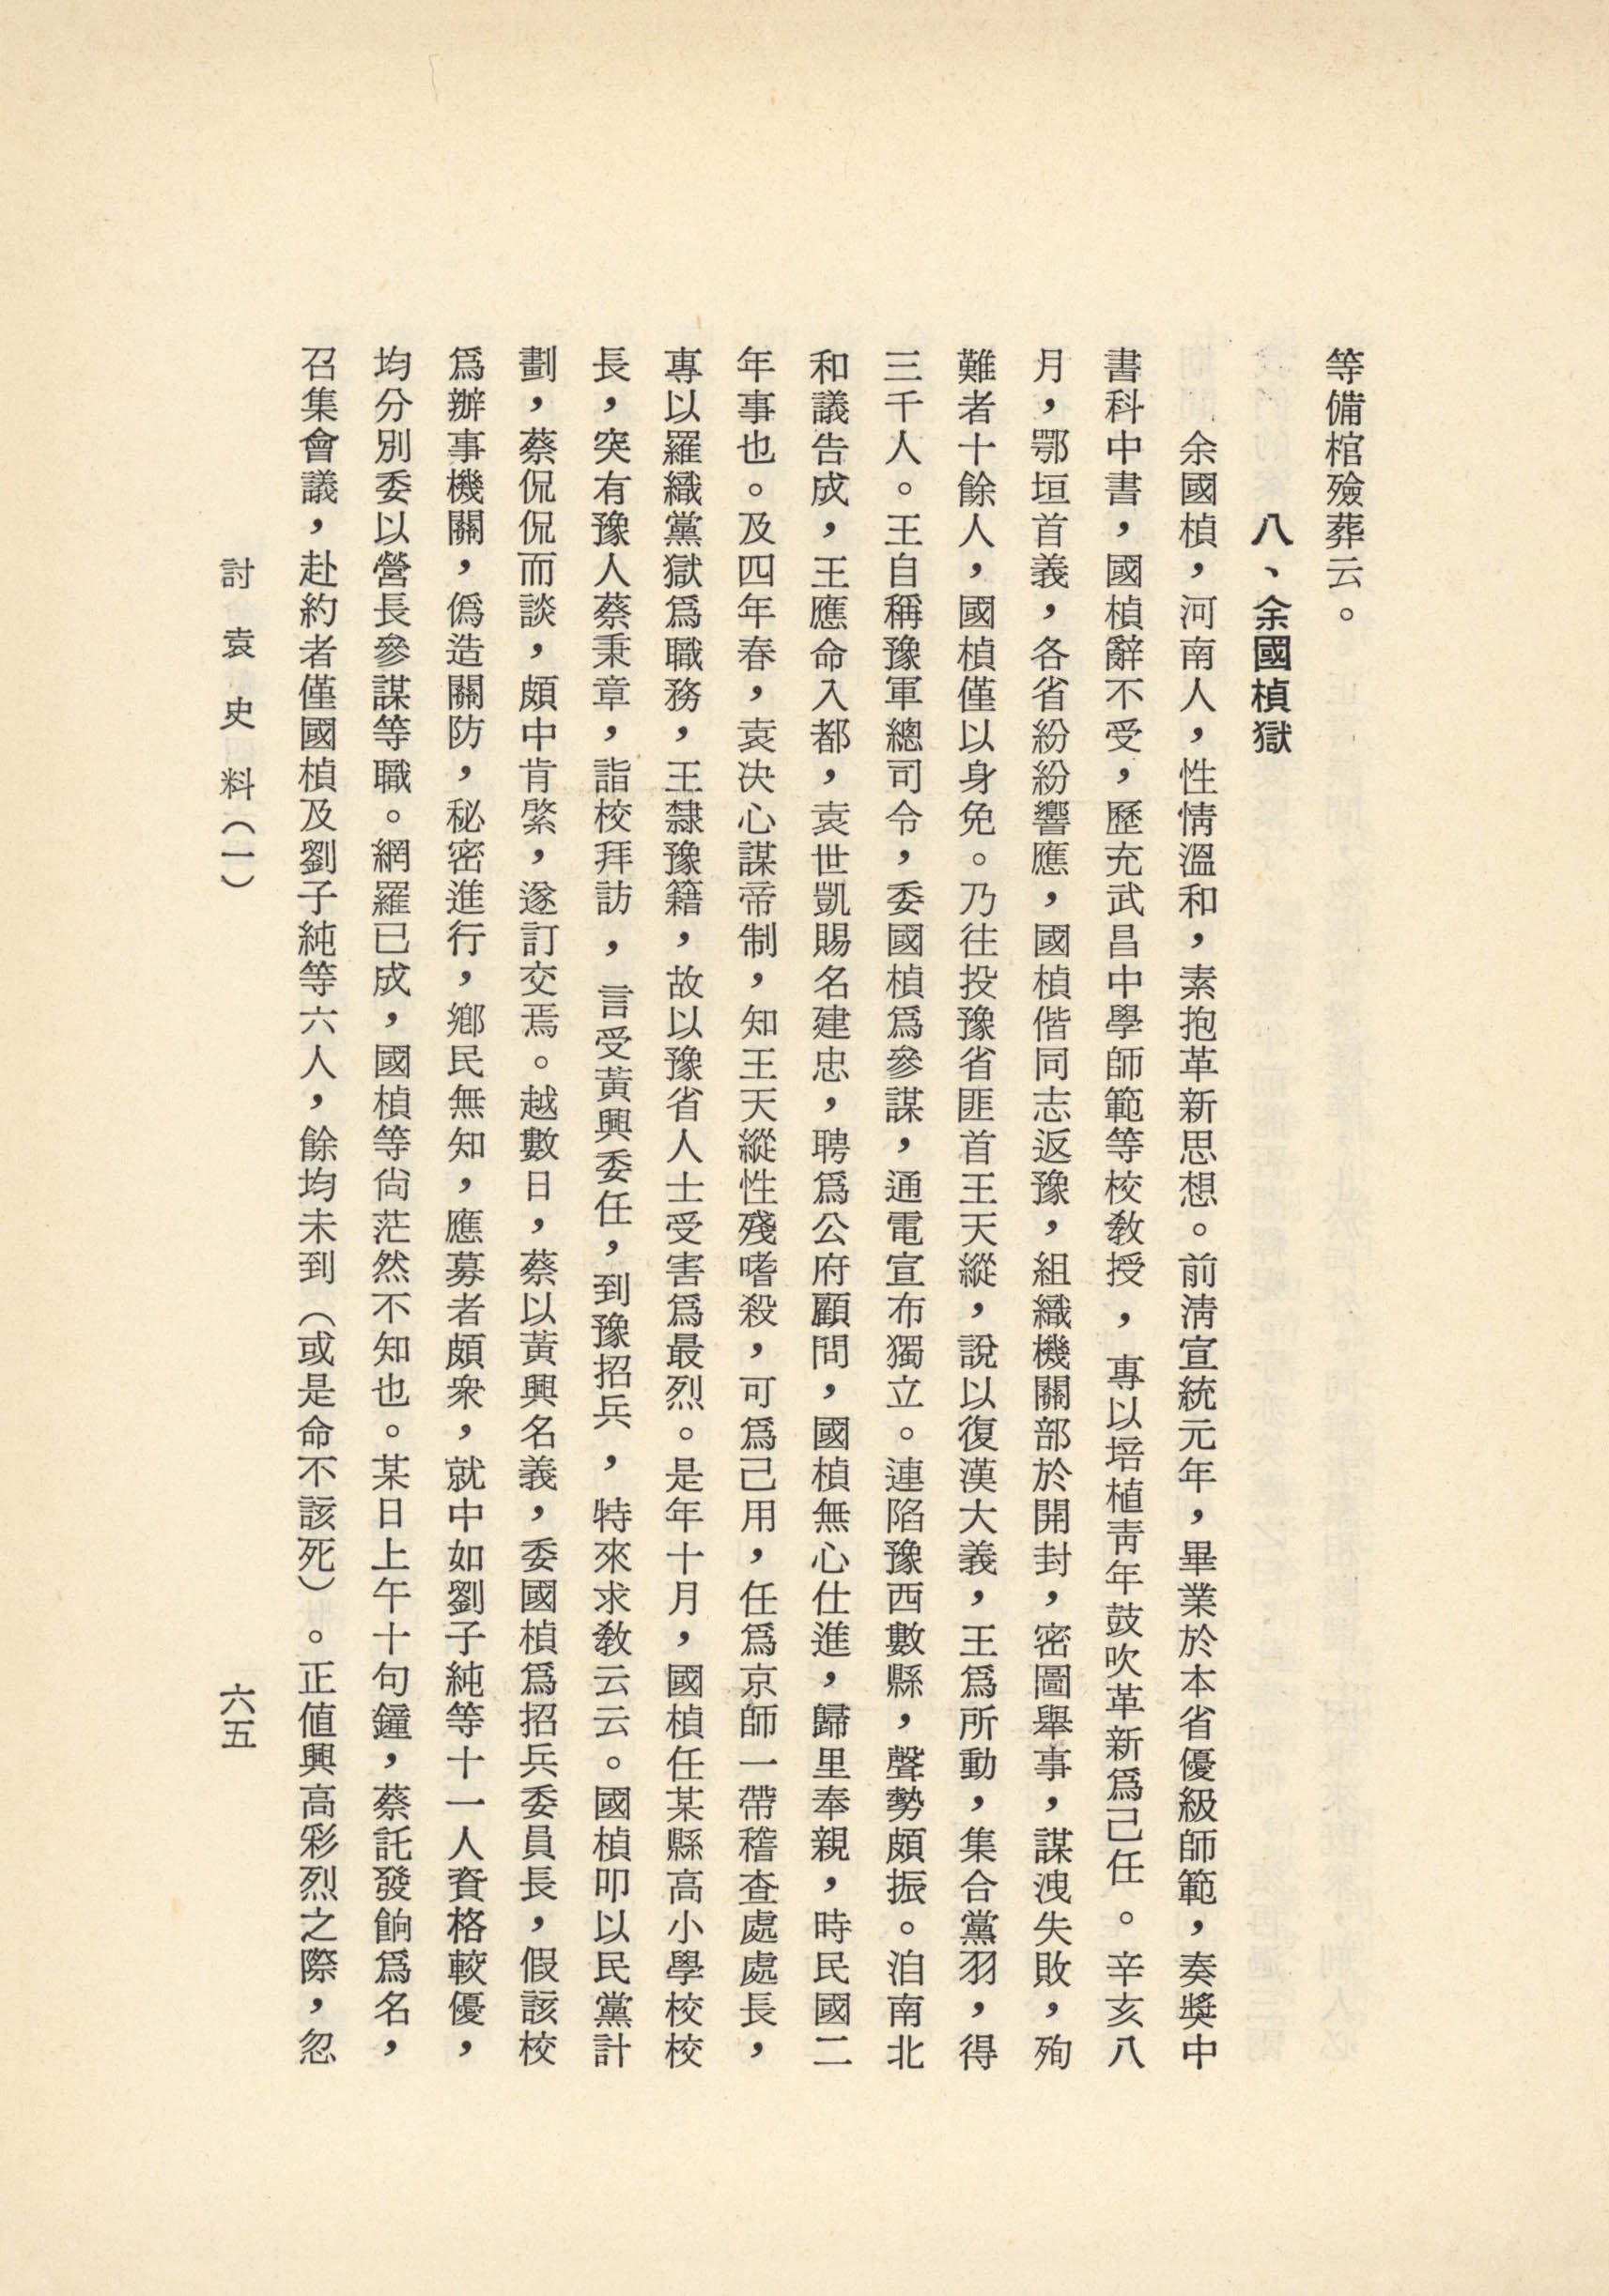 等備棺殮葬云。
八、余國楨獄
余國楨，河南人，性情溫和，素抱革新思想。前淸宣統元年，畢業於本省優級師範，奏獎中
書科中書，國楨辭不受，歷充武昌中學師範等校敎授，專以培植靑年鼓吹革新爲己任。辛亥八
月，鄂垣首義，各省紛紛響應，國楨偕同志返豫，組織機關部於開封，密圖舉事，謀洩失敗，殉
難者十餘人，國楨僅以身免。乃往投豫省匪首王天縱，說以復漢大義，王爲所動，集合黨羽，得
三千人。王自稱豫軍總司令，委國楨爲參謀，通電宣布獨立。連陷豫西數縣，聲勢頗振。洎南北
和議告成，王應命入都，袁世凱賜名建忠，聘爲公府顧問，國楨無心仕進，歸里奉親，時民國二
年事也。及四年春，袁决心謀帝制，知王天縱性殘嗜殺，可爲己用，任爲京師一帶稽查處處長，
專以羅織黨獄爲職務，王隸豫籍，故以豫省人士受害爲最烈。是年十月，國楨任某縣高小學校校
長，突有豫人蔡秉章，詣校拜訪，言受黃興委任，到豫招兵，特來求敎云云。國楨叩以民黨計
劃，蔡侃侃而談，頗中肯綮，遂訂交焉。越數日，蔡以黃興名義，委國楨爲招兵委員長，假該校
爲辦事機關，僞造關防，秘密進行，鄉民無知，應募者頗衆，就中如劉子純等十一人資格較優，
均分別委以營長參謀等職。網羅已成，國楨等尙茫然不知也。某日上午十句鐘，蔡託發餉爲名，
召集會議，赴約者僅國楨及劉子純等六人，餘均未到（或是命不該死）。正値興高彩烈之際，忽
討袁史料（一）
六五